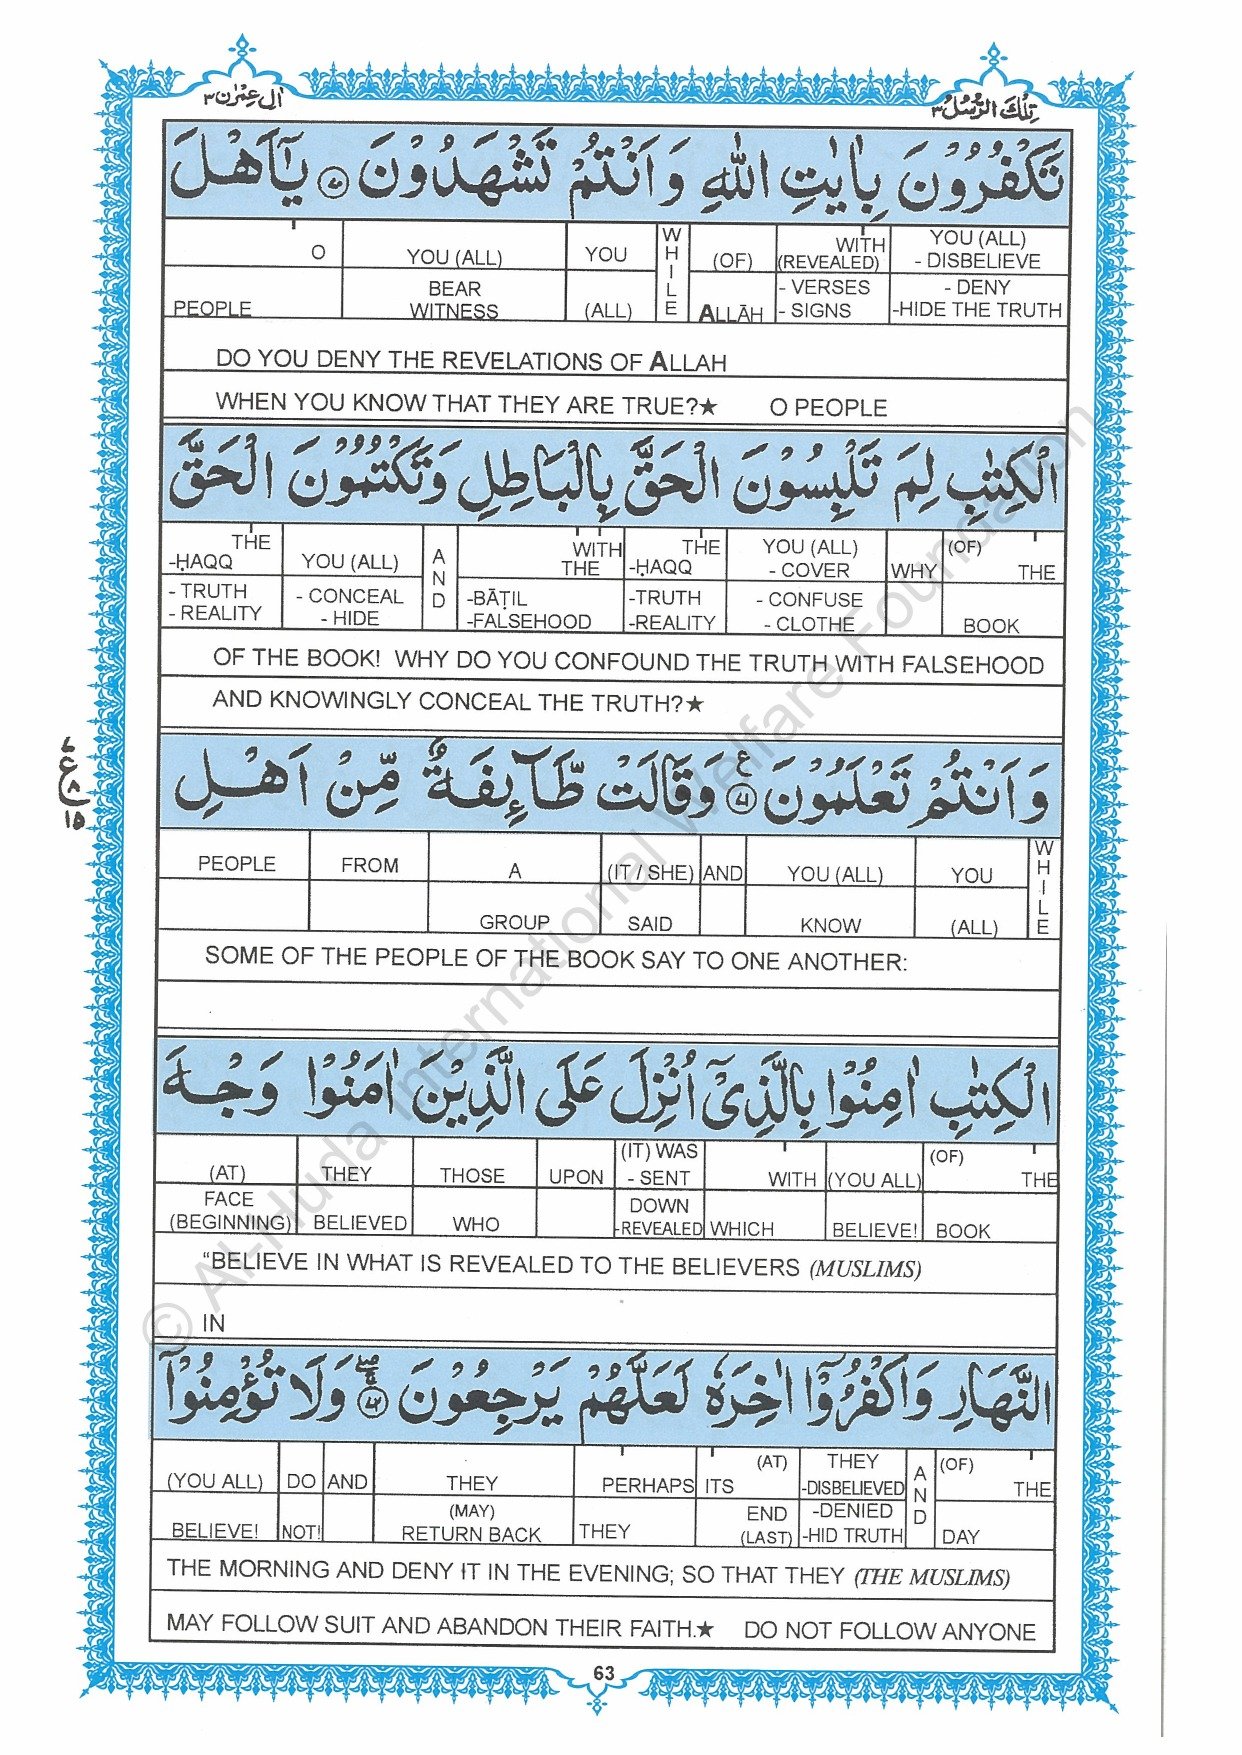 اٰل عِمْرٰن ٣
تِلْكَ الرُّسُلُ ٣
تَكْفُرُوْنَ بِاٰيٰتِ اللّٰهِ وَاَنْتُمْ تَشْهَدُوْنَ ٧٠ يٰٓاَهْلَ
O YOU (ALL) YOU WHILE (OF) WITH (REVEALED) YOU (ALL) - DISBELIEVE
PEOPLE BEAR WITNESS (ALL) ALLĀH - VERSES - SIGNS - DENY -HIDE THE TRUTH
DO YOU DENY THE REVELATIONS OF ALLAH
WHEN YOU KNOW THAT THEY ARE TRUE?★ O PEOPLE
الْكِتٰبِ لِمَ تَلْبِسُوْنَ الْحَقَّ بِالْبَاطِلِ وَتَكْتُمُوْنَ الْحَقَّ
THE -ḤAQQ YOU (ALL) AND WITH THE THE -ḤAQQ YOU (ALL) - COVER WHY (OF) THE
- TRUTH - REALITY - CONCEAL - HIDE -BĀṬIL -FALSEHOOD -TRUTH -REALITY - CONFUSE - CLOTHE BOOK
OF THE BOOK! WHY DO YOU CONFOUND THE TRUTH WITH FALSEHOOD
AND KNOWINGLY CONCEAL THE TRUTH?★
وَاَنْتُمْ تَعْلَمُوْنَ ٧١ ع وَقَالَتْ طَّآئِفَةٌ مِّنْ اَهْلِ
٧
ع
٨
١٥
PEOPLE FROM A (IT / SHE) AND YOU (ALL) YOU WHILE
GROUP SAID KNOW (ALL)
SOME OF THE PEOPLE OF THE BOOK SAY TO ONE ANOTHER:
الْكِتٰبِ اٰمِنُوْا بِالَّذِيْٓ اُنْزِلَ عَلَى الَّذِيْنَ اٰمَنُوْا وَجْهَ
(AT) THEY THOSE UPON (IT) WAS - SENT WITH (YOU ALL) (OF) THE
FACE (BEGINNING) BELIEVED WHO DOWN -REVEALED WHICH BELIEVE! BOOK
“BELIEVE IN WHAT IS REVEALED TO THE BELIEVERS (MUSLIMS)
IN
النَّهَارِ وَاكْفُرُوْٓا اٰخِرَهٗ لَعَلَّهُمْ يَرْجِعُوْنَ ٧٢ وَلَا تُؤْمِنُوْٓا
(YOU ALL) DO AND THEY PERHAPS ITS (AT) THEY -DISBELIEVED AND (OF) THE
BELIEVE! NOT! (MAY) RETURN BACK THEY END (LAST) -DENIED -HID TRUTH DAY
THE MORNING AND DENY IT IN THE EVENING; SO THAT THEY (THE MUSLIMS)
MAY FOLLOW SUIT AND ABANDON THEIR FAITH.★ DO NOT FOLLOW ANYONE
63
© Al-Huda International Welfare Foundation